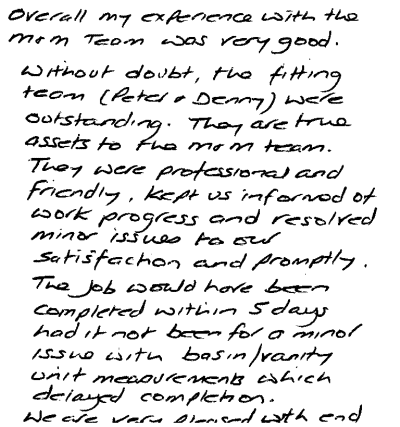 Overall my experience with the
M&M Team was very good.
Without doubt, the fitting
team (Peter & Denny) were
outstanding. They are true
assets to the M&M team.
They were professional and
friendly, kept us informed of
work progress and resolved
minor issues to our
satisfaction and promptly.
The job would have been
completed within 5 days
had it not been for a minor
issue with basin/vanity
unit measurements which
delayed completion.
We are very pleased with end